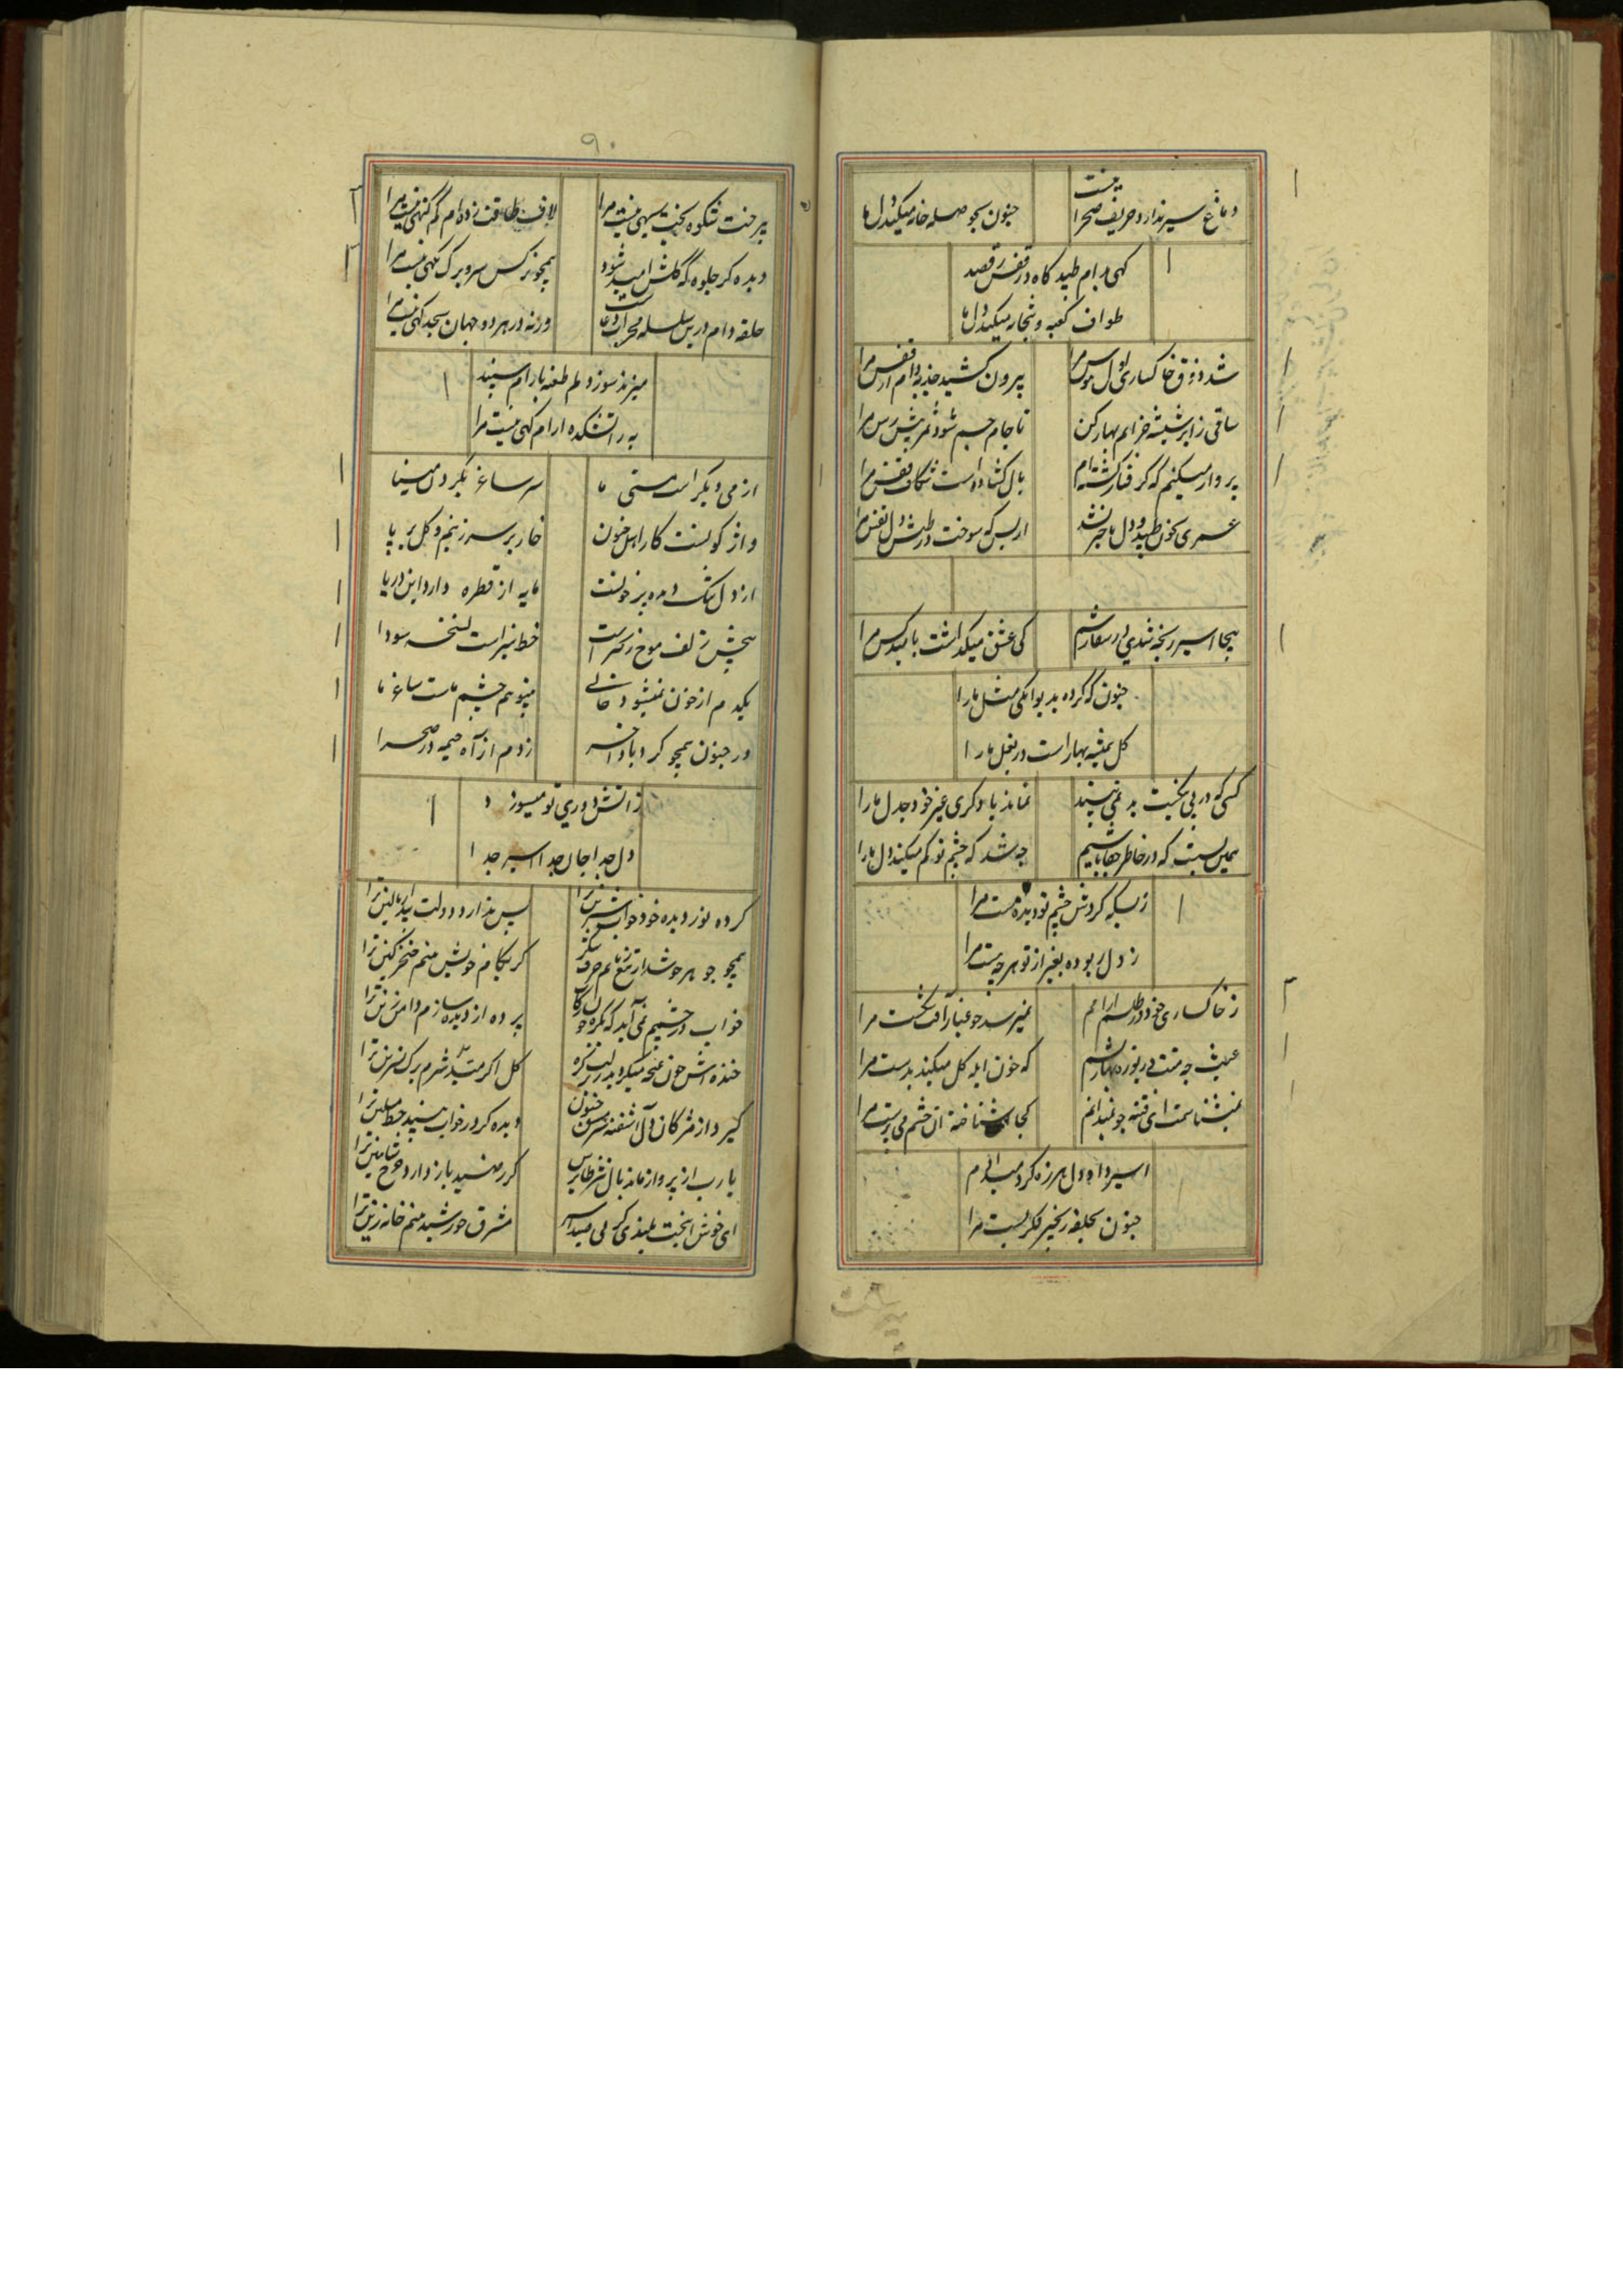 دماغ سیر ندارد حریف صحرا نیست
جنون بحوصله خانه میکند دل ما
کهی بدام طپید کاه در قفس رقصید
طواف کعبه و بتخانه میکند دل ما
شد ذوق خاکساری اول هوس مرا
بیرون کشید جذبه دام از قفس مرا
ساقی ز ابر شیشه خزانم بهار کن
تا جام جسم شود ثمر پیش رس مرا
پرواز میکنم که کرفتار کشته‌ام
بال کشاده است شکاف قفس مرا
عمری بخون طپید و دل با خبر نشد
از بس که سوخت در طپش دل نفس مرا
بیجا اسیر رنجه شدی در سفارشم
کی عشق میکذاشت بامید کس مرا
جنون که کرده بدیوانکی مثل ما را
کل همیشه بهار است در بغل ما را
کسی که در پی بخت بد نمی بیند
نماند با دکری غیر خود جدل ما را
همین بس است که در خاطر جفا باشیم
چه شد که چشم تو کم میکند دل ما را
ز بسکه کردش چشم تو دیده مست مرا
ز دل ربوده بغیر از تو هر چه هست مرا
ز خاکساری خود در طلسم آرامم
نمیرسد چو غبار آفت شکست مرا
عبث چه منت دریوزه بهار کشم
که خون ابله کل میکند بدست مرا
نمیشناسمت ای فتنه جو نمیدانم
کجا شناخته آن چشم می پرست مرا
اسیر داد دل هرزه کرد میدادم
جنون بحلقه زنجیر فکر بست مرا
پیر حنت
۹۰
شکوه بخت سیهی نیست مرا
لاف طاقت زده‌ام کم کنهی نیست مرا
دیده کر جلوه که کلشن امید شود
همچو نرکس سر و برک نکهی نیست مرا
حلقه دام درین سلسله محراب دعاست
ورنه در هر دو جهان سجده کهی نیست مرا
میزند سوز دلم طعنه بارام سپند
به ز آتشکده ارام کهی نیست مرا
از می دیکر است مستی ما
سر ساغر بکرد دل مینا
واژکونست کار اهل جنون
خار بر سر زنیم و کل بر پا
از دل تنک دیده پر خونست
مایه از قطره دارد این دریا
پیچش زلف موج زنجیر است
خط سبز است نسخه سودا
یکدم از خون نمیشود خالی
بیتو هم چشم ماست ساغر ما
در جنون همچو کردباد اخر
زدم از آه خیمه در صحرا
ز آتش دوری تو میسوزد
دل جدا جان جدا اسیر جدا
کرده نور دیده خود خواب شیرین ترا
بس ندارد دولت بیدار بالین ترا
کر بکام خویش بینم خنجر کین ترا
خواب در چشمم نمی آید که
پرده از دیده سازم دامن زین ترا
خنده اش چون غنچه میکردد
کل اکر بیند شرم برک نسرین ترا
کیرد از مژکان دل اشفته سرمشق جنون
دیده کر در خواب بیند خط مشکین ترا
یا رب از پرواز ماند بال نسر طایرش
کر رسید باز دارد چرخ شاهین ترا
ای خوش انبخت بلندی که می بیند اسیر
مشرق خورشید بینم خانه زین ترا